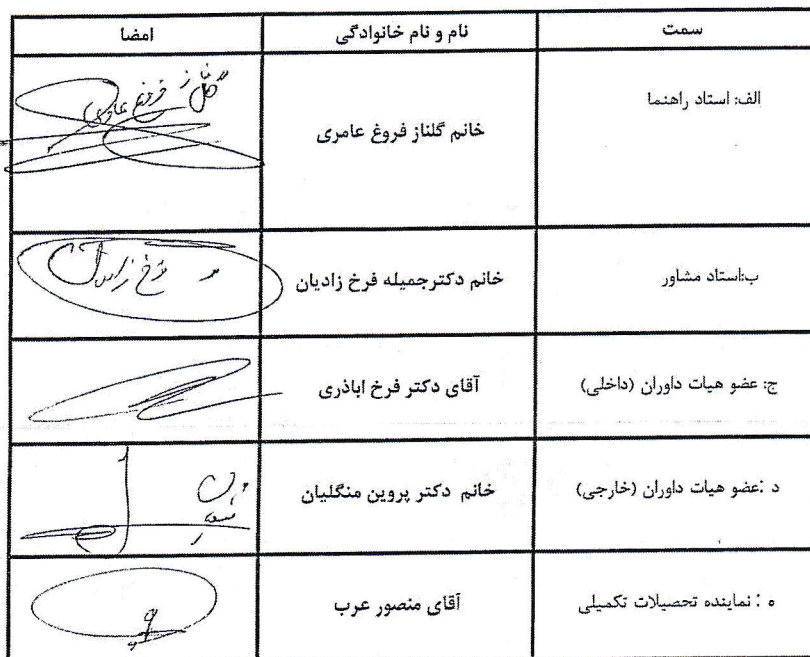 سمت	نام و نام خانوادگی	امضا
الف: استاد راهنما	خانم گلناز فروغ عامری	گلناز فروغ عامری
ب:استاد مشاور	خانم دکترجمیله فرخ زادیان	فرخ زادیان
ج: عضو هیات داوران (داخلی)	آقای دکتر فرخ اباذری
د :عضو هیات داوران (خارجی)	خانم دکتر پروین منگلیان
ه : نماینده تحصیلات تکمیلی	آقای منصور عرب